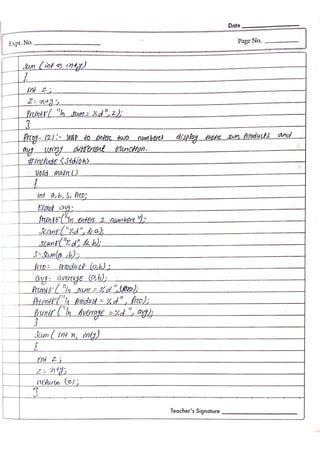 Date
Expt. No.
Page No.
Sum (int x, int y)
{
int z;
z = x+y;
Printf ("\n sum = %d", z);
}
Prog. 121:- WAP to enter two numbers display there sum, Products and
avg using different function.
#include <stdio.h>
Void main ()
{
int a, b, s, Pro;
Float avg;
Printf ("\n enter 2 numbers");
scanf ("%d", &a);
scanf ("%d", &b);
S = Sum (a, b);
Pro = Product (a,b);
avg = average (a,b);
Printf ("\n sum = %d",
Printf ("\n Product = %d", Pro);
Printf ("\n Average = %d", avg);
}
Sum ( int x, int y)
{
int z;
z = x+y;
return (z);
}
Teacher's Signature